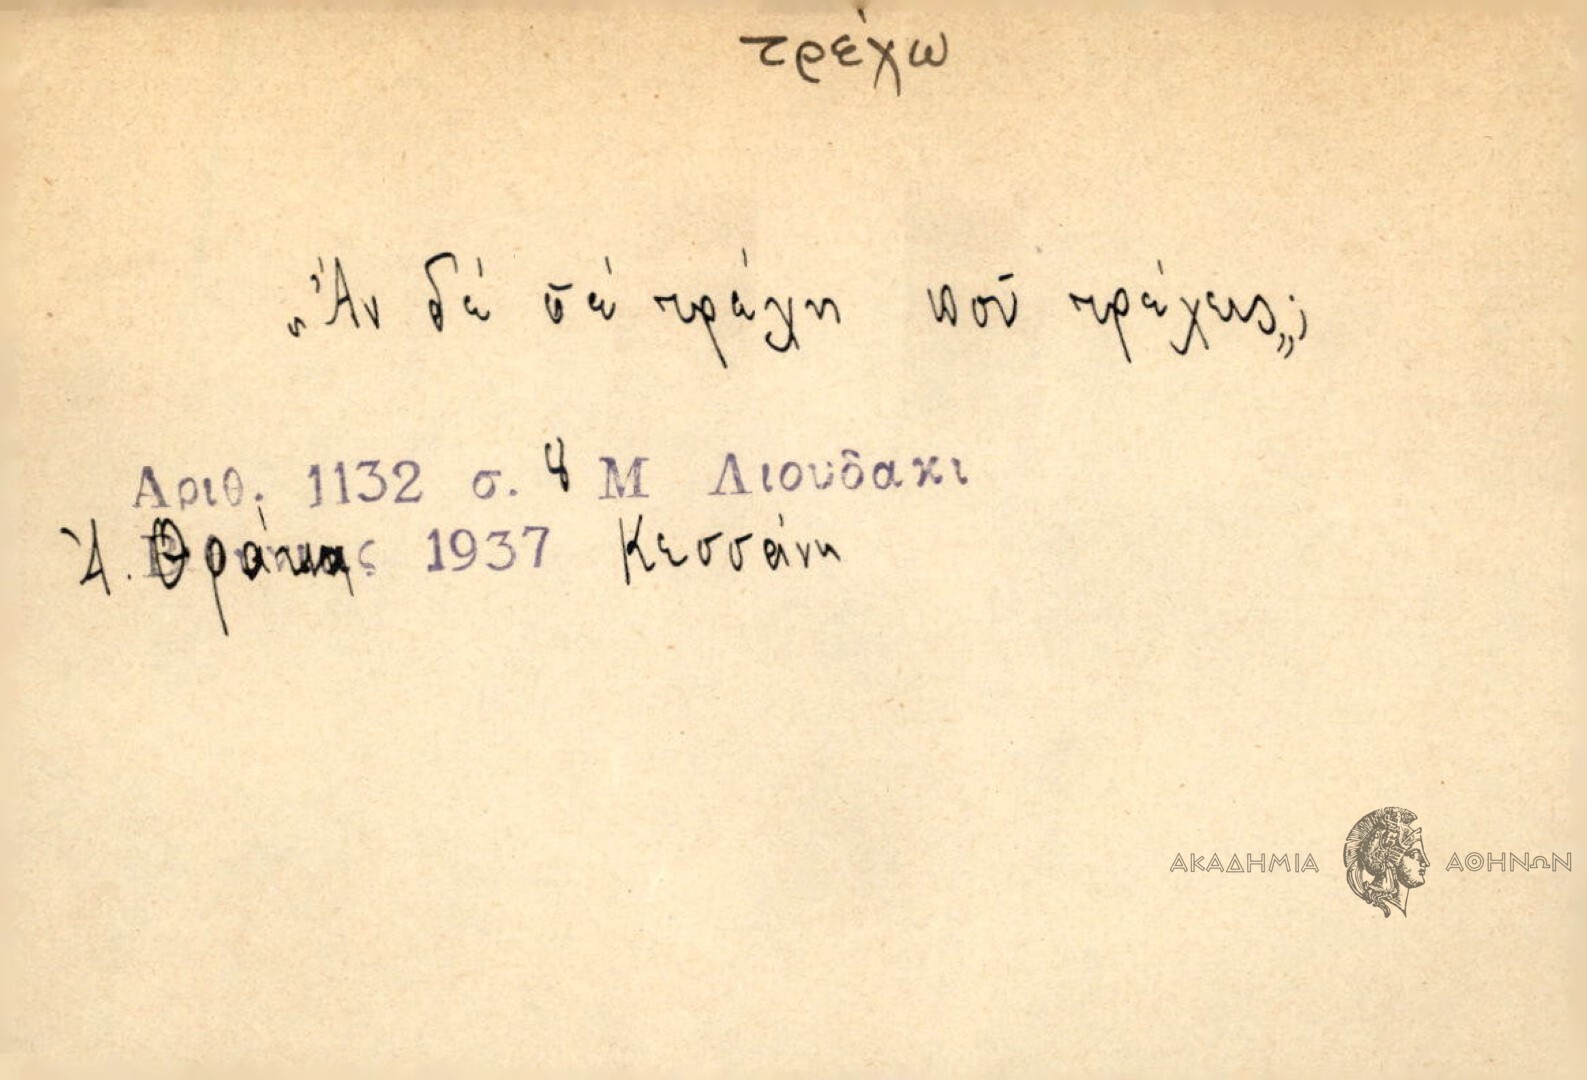 τρέχω
„Ἄν δέ σέ τρέχη ποῦ τρέχεις„;
Αριθ. 1132 σ. 8 Μ Λιουδακι
Ἀ. Θράκη 1937 Κεσσάνη
ΑΚΑΔΗΜΙΑ ΑΘΗΝΩΝ